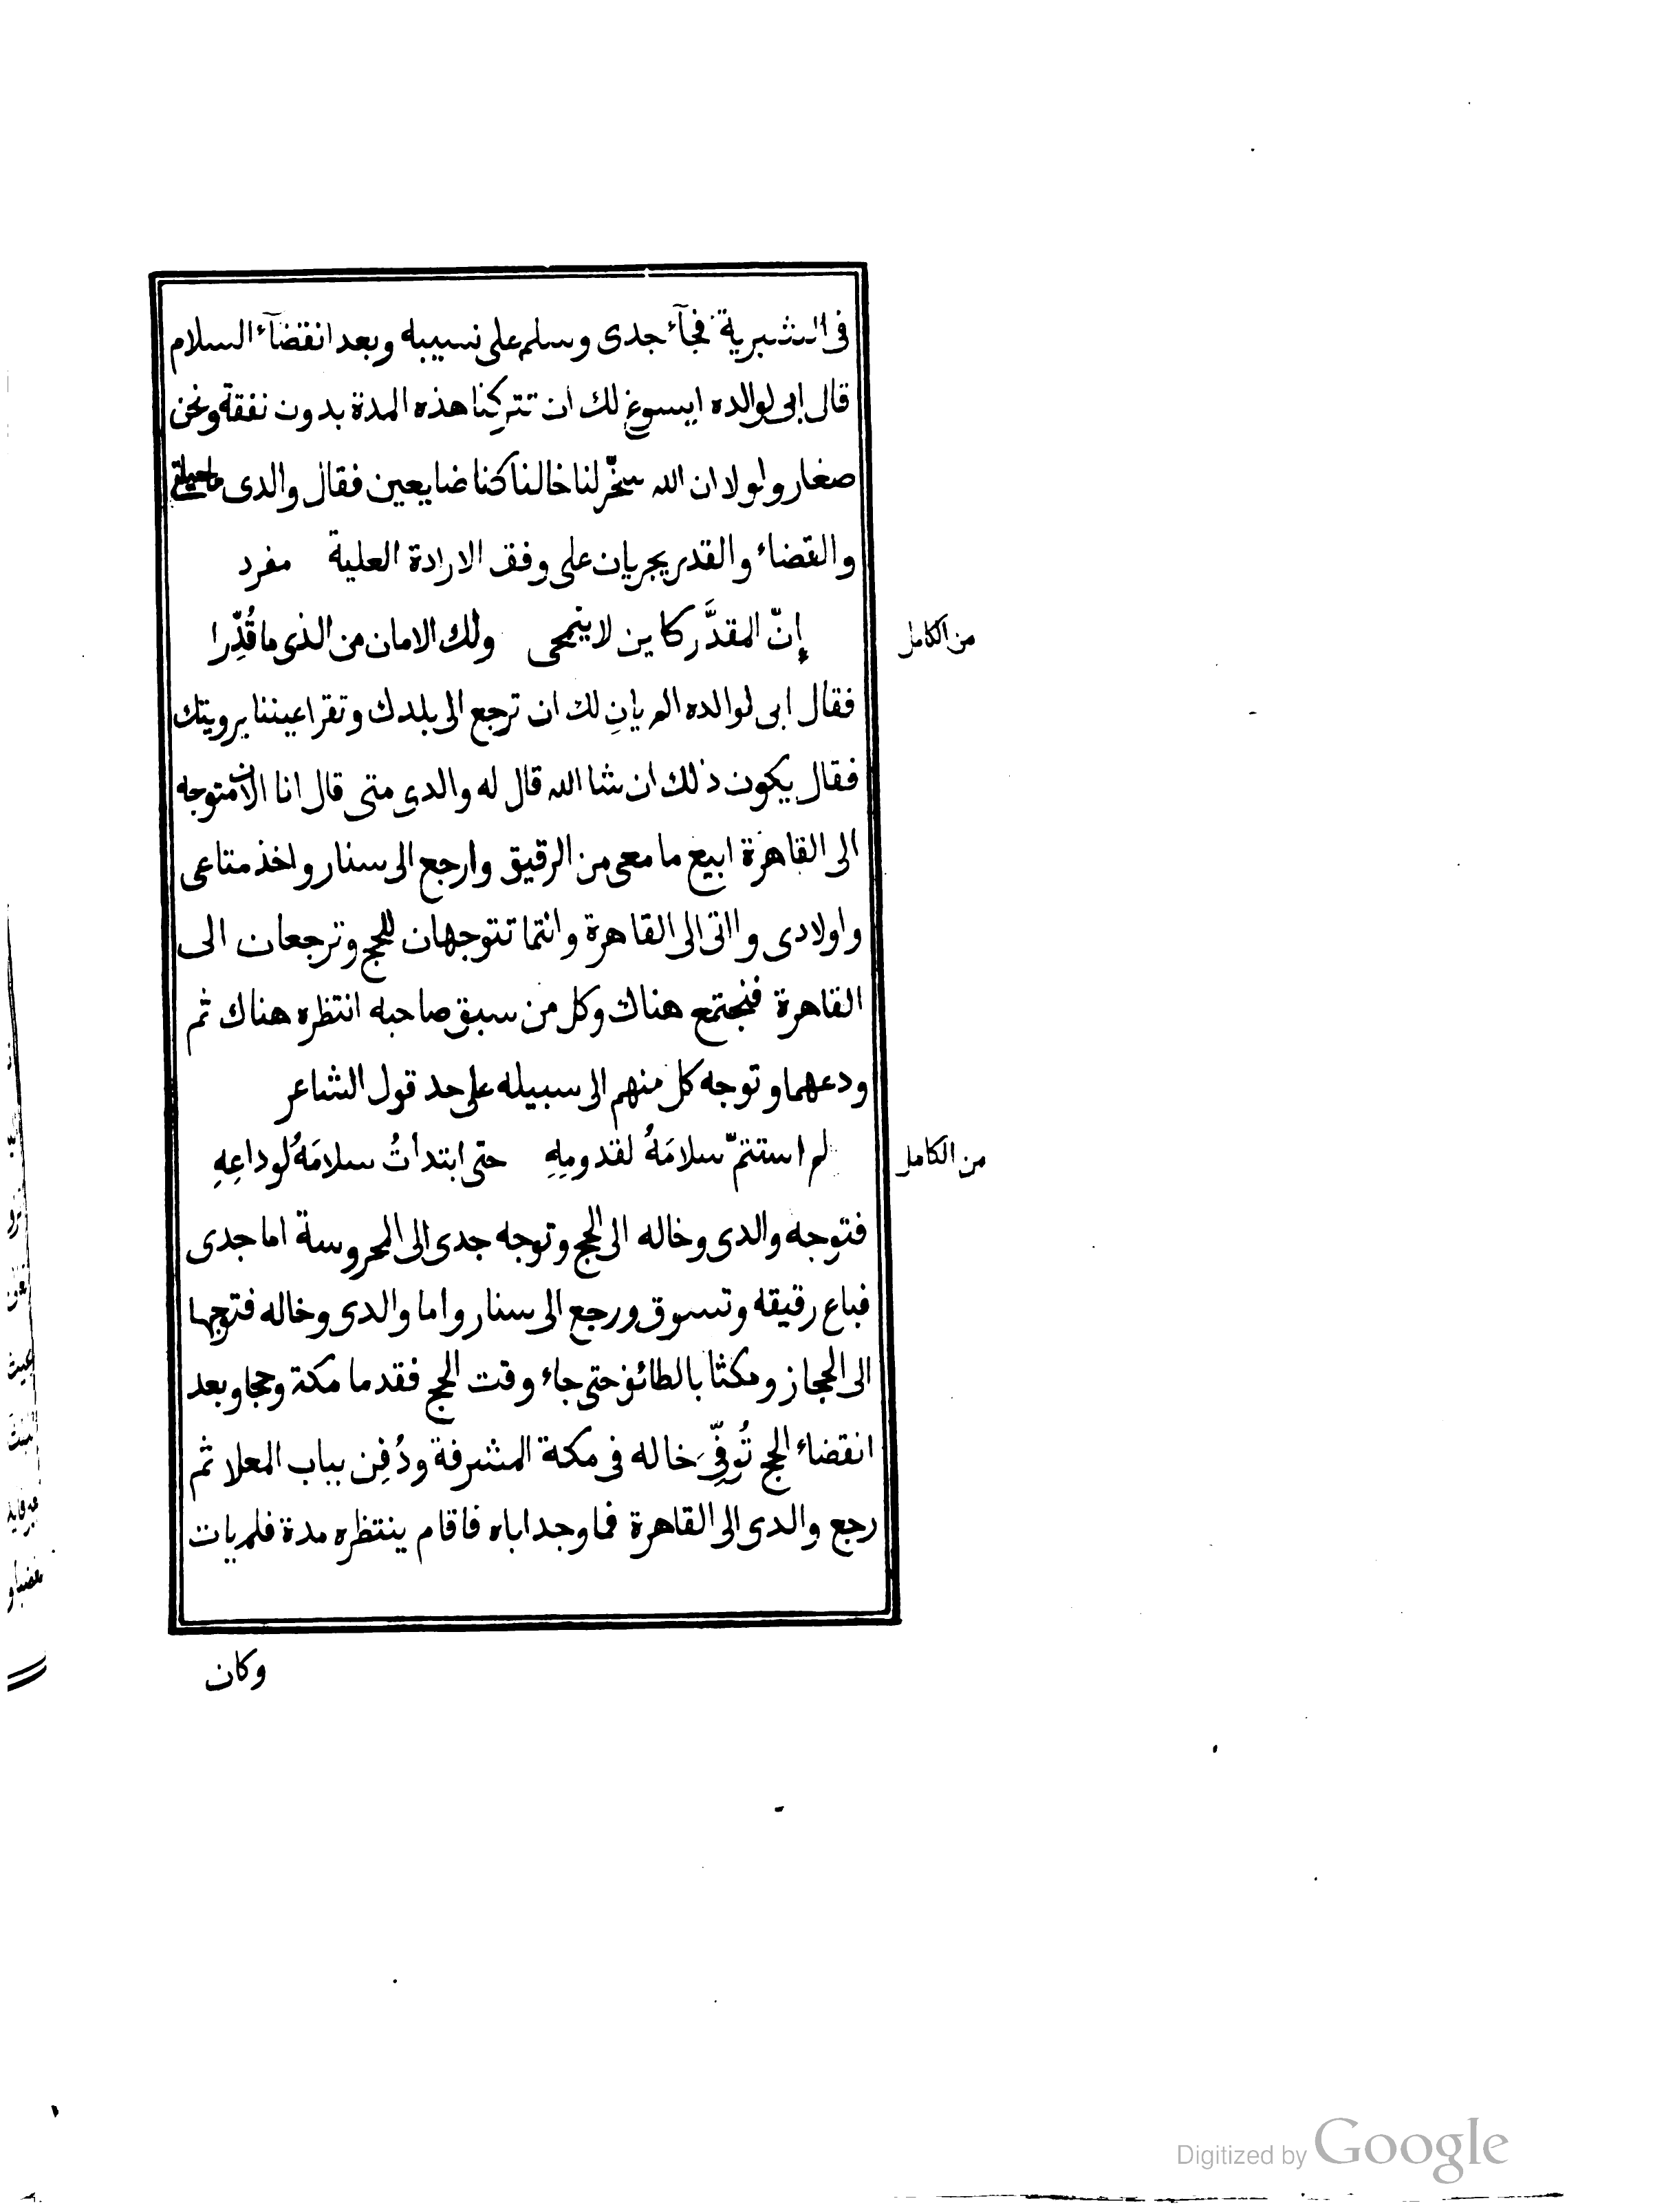 فى الشبرية فجآء جدى وسلم على نسيبه وبعد انقضآء السلام
قال ابى لوالده ايسوغ لك ان تتركنا هذه المدة بدون نفقة ونحن
صغار ولولا ان الله سخّر لنا خالنا كنا ضايعين فقال والدى ما حيلتى
والقضاء والقدر يجريان على وفق الارادة العلية مفرد
إنّ المقدَّر كاين لا ينمحى ولك الامان من الذى ما قُدِّرا
من الكامل
فقال ابى لوالده الم يانِ لك ان ترجع الى بلدك وتقر اعيننا برويتك
فقال يكون ذلك ان شا الله قال له والدى متى قال انا الان متوجه
الى القاهرة ابيع ما معى من الرقيق وارجع الى سنار واخذ متاعى
واولادى وااتى الى القاهرة وانتما تتوجهان للحج وترجعان الى
القاهرة فنجتمع هناك وكل من سبق صاحبه انتظره هناك ثم
ودعهما وتوجه كل منهم الى سبيله على حد قول الشاعر
لم استتمّ سلامَهُ لقدومِهِ حتى ابتداتُ سلامَهُ لوداعِهِ
من الكامل
فتوجه والدى وخاله الى الحج وتوجه جدى الى المحروسة اما جدى
فباع رقيقه وتسوق ورجع الى سنار واما والدى وخاله فتوجها
الى الحجاز ومكثا بالطائف حتى جاء وقت الحج فقدما مكة وحجا وبعد
انقضاء الحج تُوفِّىَ خاله فى مكة المشرفة ودُفِن بباب المعلا ثم
رجع والدى الى القاهرة فما وجد اباه فاقام ينتظره مدة فلم يات
وكان
Digitized by Google